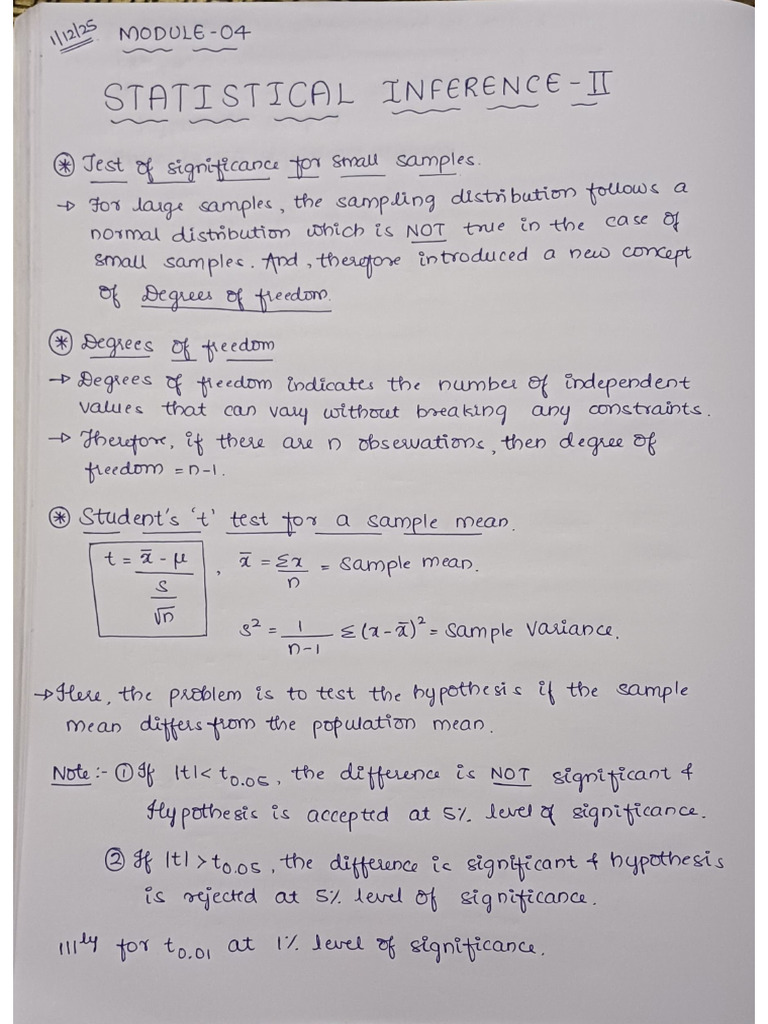 1/12/25 MODULE-04
STATISTICAL INFERENCE-II
* Test of significance for small samples.
→ For large samples, the sampling distribution follows a
normal distribution which is NOT true in the case of
small samples. And, therefore introduced a new concept
of Degrees of freedom.
* Degrees of freedom
→ Degrees of freedom indicates the number of independent
values that can vary without breaking any constraints.
→ Therefore, if there are n observations, then degree of
freedom = n-1.
* Student's 't' test for a sample mean.
t = x̄ - μ / (s/√n) , x̄ = Σx/n = sample mean.
s² = 1/(n-1) Σ(x-x̄)² = sample variance.
→ Here, the problem is to test the hypothesis if the sample
mean differs from the population mean.
Note :- ① If |t| < t0.05, the difference is NOT significant &
Hypothesis is accepted at 5% level of significance.
② If |t| > t0.05, the difference is significant & hypothesis
is rejected at 5% level of significance.
lllly for t0.01 at 1% level of significance.